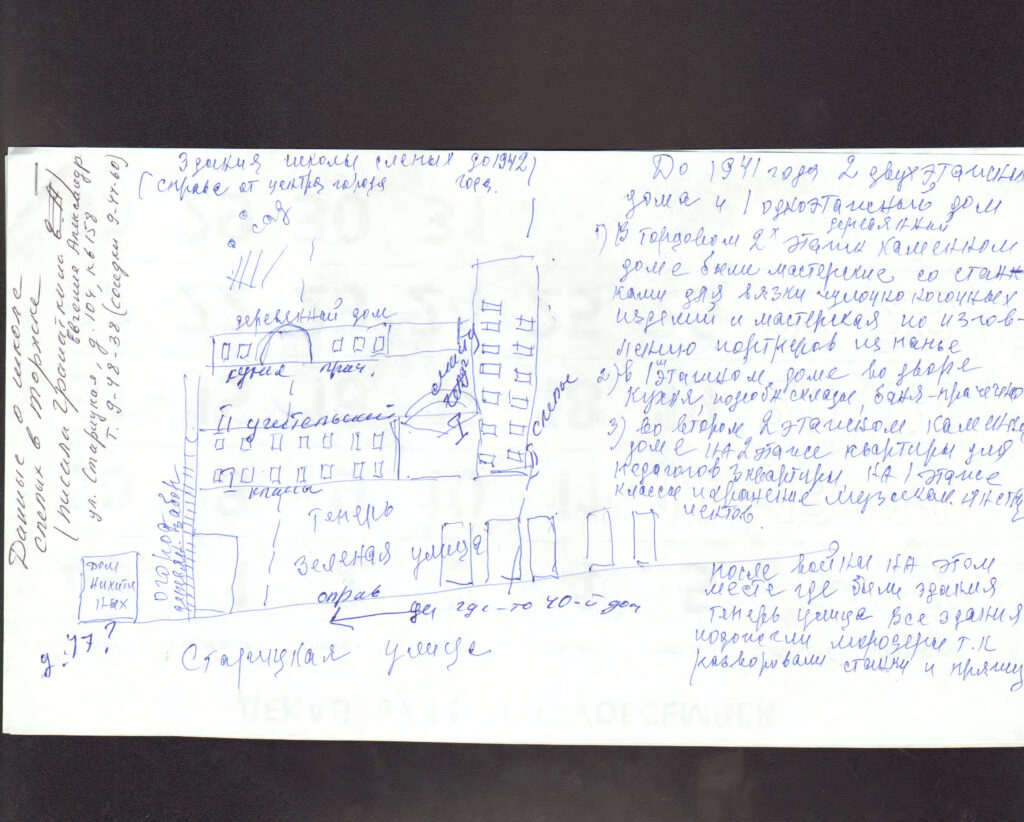 Данные о школе
слепых в Торжке
(писала Грамай
Евгения Александр
ул. Старицкая, д. 104, кв 158
т. 9-48-38 (соседки 9-44-60)
Здания школы слепых до 1942
(справа от центра города года.
сад
деревянный дом
кухня прач.
II учительский
классы
слепые
теперь
Зеленая улица
оправ
где-то 40-й дом
огород
деревян. забор
Дом
Никити
ных
д. 47?
Старицкая улица
До 1941 года 2 двухэтажн
дома и 1 одноэтажный дом
деревянный
1) В торцовом 2х этажн каменном
доме были мастерские со стан
ками для вязки чулочно носочных
изделий и мастерская по изгов-
лению
2) в 1 этажном доме во дворе
кухня склады, баня-прачечн
3) во втором 2 этажном каменн
доме на 2 этаже квартиры для
педагогов 3 квартиры на 1 этаже
классы и хранение музыкал инстру
ментов.
после войны на этом
месте где были здания
теперь улица Все здания
подожгли мародеры т.к
разворовали станки и пряжу
ДЕКАБРЬ/DECEMBER